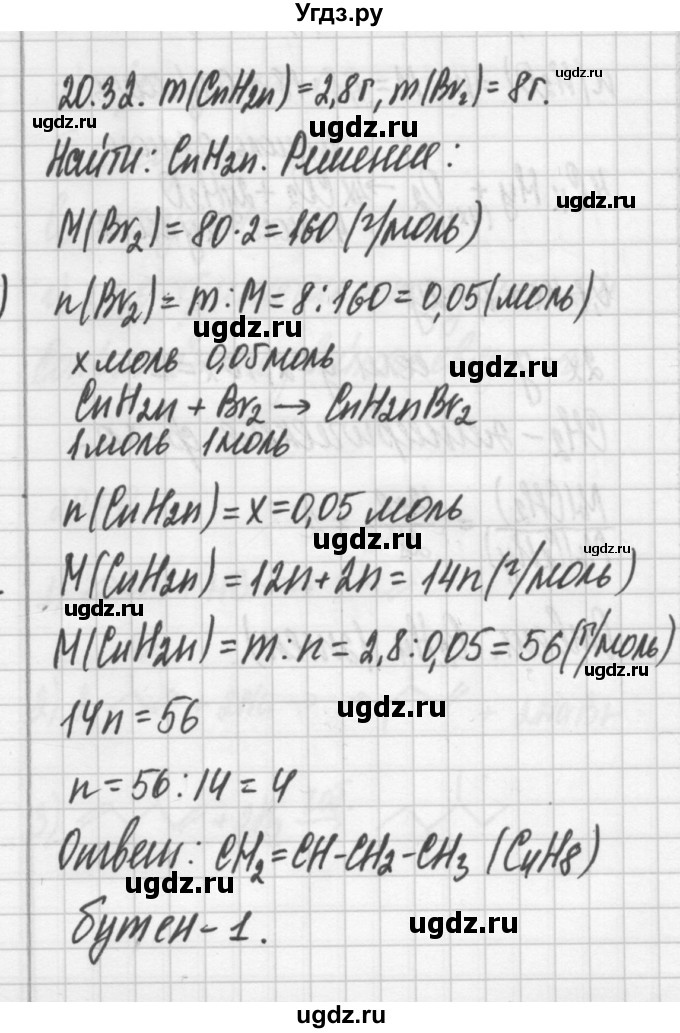 Угдз.ру
20.32. m(CnH2n) = 2,8г, m(Br₂) = 8г.
ugdz.ru ugdz.ru ugdz.ru
Найти: CnH2n. Решение:
ugdz.ru ugdz.ru
M(Br₂) = 80·2 = 160 (г/моль)
n(Br₂) = m : M = 8 : 160 = 0,05 (моль)
ugdz.ru
x моль 0,05 моль
ugdz.ru
CnH2n + Br₂ → CnH2nBr₂
1 моль 1 моль
n(CnH2n) = x = 0,05 моль
ugdz.ru ugdz.ru
M(CnH2n) = 12n + 2n = 14n (г/моль)
ugdz.ru
M(CnH2n) = m : n = 2,8 : 0,05 = 56 (г/моль)
ugdz.ru
14n = 56
ugdz.ru
n = 56 : 14 = 4
Ответ: CH₂=CH-CH2-CH3 (C4H8)
ugdz.ru
бутен-1.
ugdz.ru
ugdz.ru